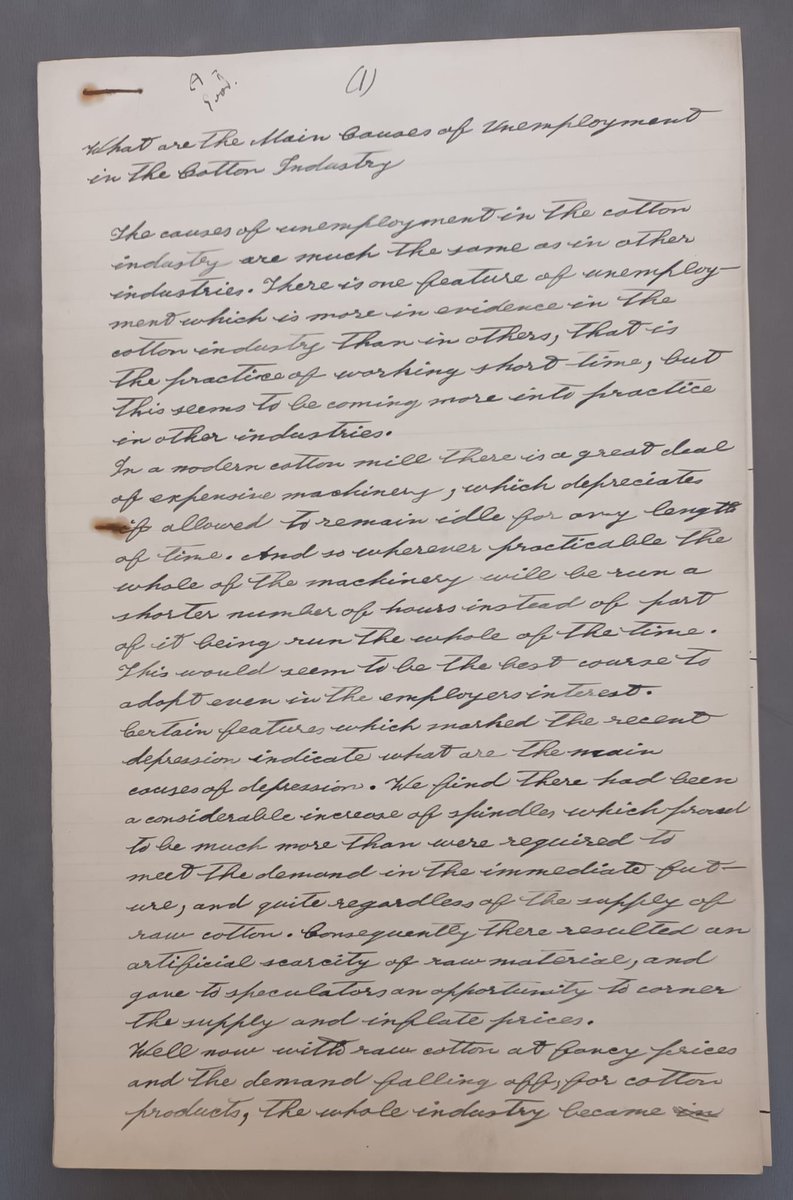 A-
Good.
(1)
What are the Main Causes of Unemployment
in the Cotton Industry
The causes of unemployment in the cotton
industry are much the same as in other
industries. There is one feature of unemploy-
ment which is more in evidence in the
cotton industry than in others, that is
the practice of working short time, but
this seems to be coming more into practice
in other industries.
In a modern cotton mill there is a great deal
of expensive machinery, which depreciates
if allowed to remain idle for any length
of time. And so wherever practicable the
whole of the machinery will be run a
shorter number of hours instead of part
of it being run the whole of the time.
This would seem to be the best course to
adopt even in the employers interest.
Certain features which marked the recent
depression indicate what are the main
causes of depression. We find there had been
a considerable increase of spindles which proved
to be much more than were required to
meet the demand in the immediate fut-
ure, and quite regardless of the supply of
raw cotton. Consequently there resulted an
artificial scarcity of raw material, and
gave to speculators an opportunity to corner
the supply and inflate prices.
Well now with raw cotton at fancy prices
and the demand falling off, for cotton
products, the whole industry became in